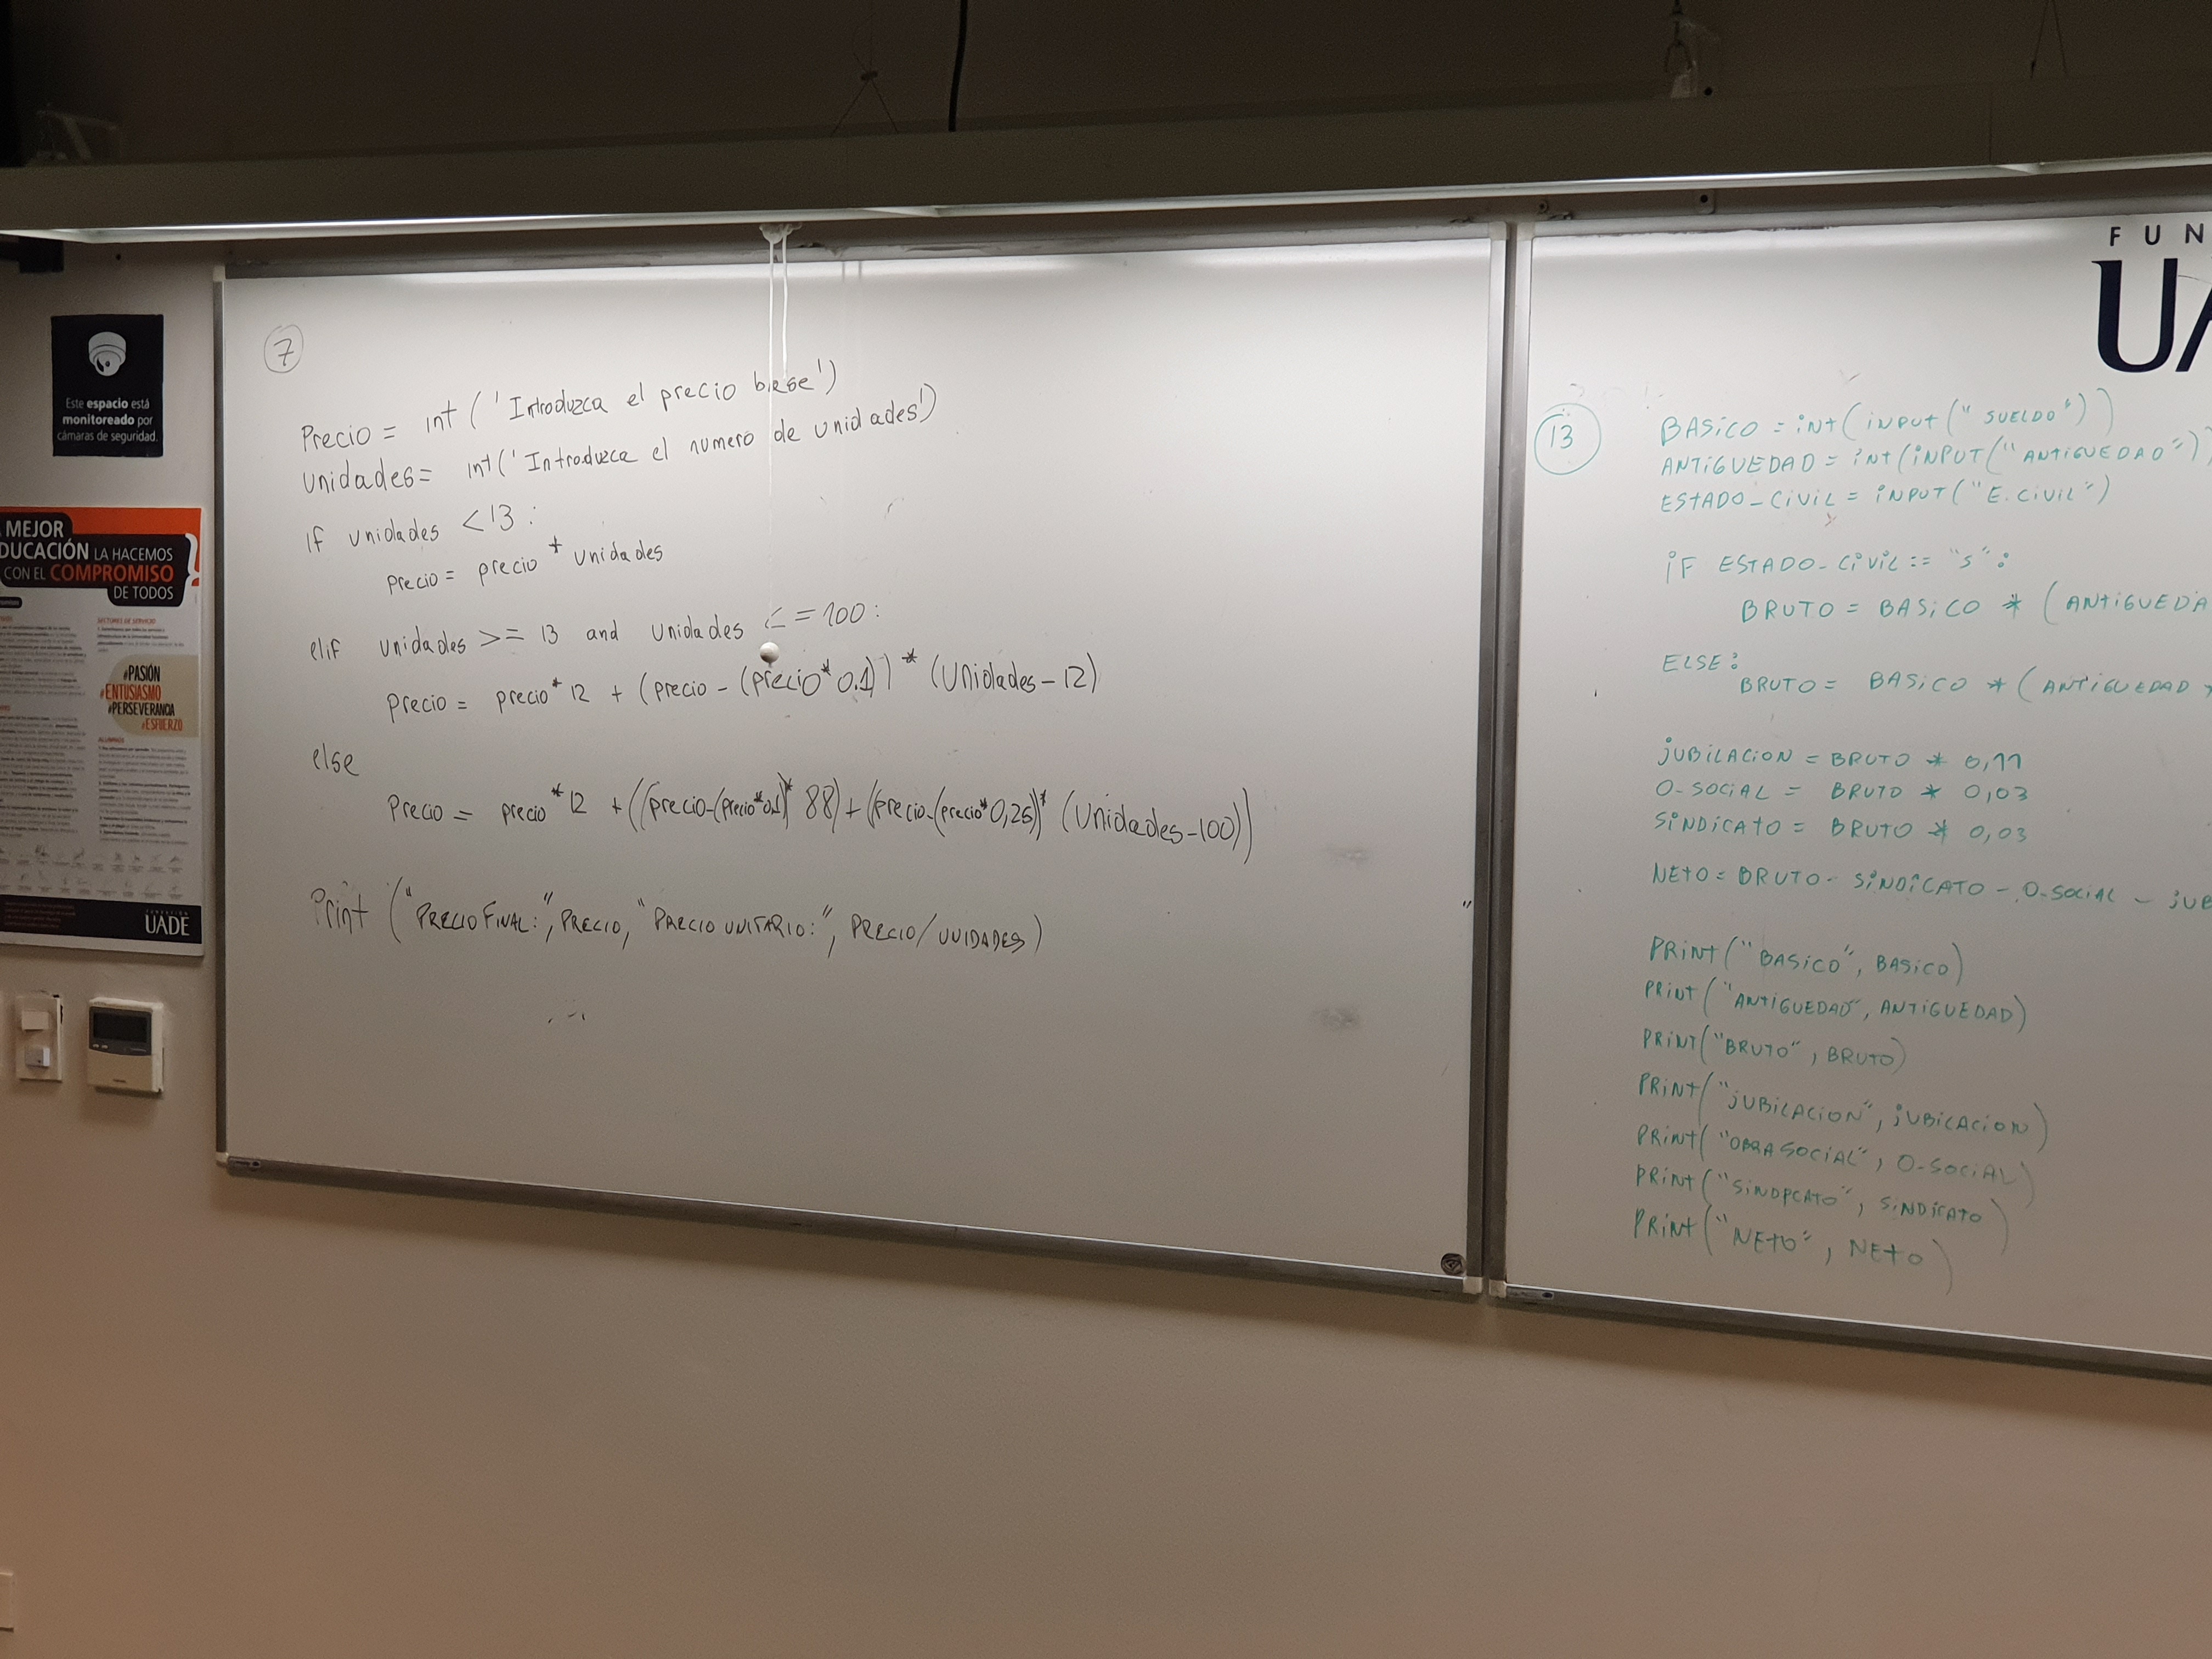 Este espacio está
monitoreado por
cámaras de seguridad.
MEJOR
DUCACIÓN LA HACEMOS
CON EL COMPROMISO
DE TODOS
#PASIÓN
#ENTUSIASMO
#PERSEVERANCIA
#ESFUERZO
FUNDACIÓN
UADE
7
Precio = int ('Introduzca el precio base')
Unidades= int('Introduzca el numero de unidades')
if unidades <13:
precio= precio * unidades
elif unidades >= 13 and unidades <=100:
precio = precio*12 + (precio-(precio*0.1))*(Unidades-12)
else
Precio = precio*12 +((precio-(precio*0.1)*88)+(precio-(precio*0,25))*(Unidades-100))
Print ("PRECIO FINAL:",PRECIO,"PRECIO UNITARIO:", PRECIO/UNIDADES)
FUN
UA
13
BASiCO = int(iNPUT("SUELDO"))
ANTiGUEDAD = int(iNPUT("ANTiGUEDAD"))
ESTADO_CiViL = iNPUT("E.CiViL")
iF ESTADO_CiViL == "S":
BRUTO = BASiCO * (ANTiGUEDA
ELSE:
BRUTO = BASiCO * (ANTiGUEDAD *
jUBiLACiON = BRUTO * 0,11
O_SOCiAL = BRUTO * 0,03
SiNDiCATO = BRUTO * 0,03
NETO = BRUTO - SiNDiCATO - O_SOCiAL - jUB
PRiNt("BASiCO", BASiCO)
PRiNt("ANTiGUEDAD", ANTiGUEDAD)
PRiNT("BRUTO", BRUTO)
PRiNt("jUBiLACiON", jUBiLACiON)
PRiNt("OBRA SOCiAL", O_SOCiAL)
PRiNt("SiNDiCATO", SiNDiCATO)
PRiNt("NEtO", NEtO)